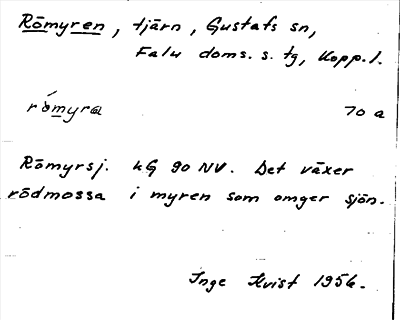 Römyren, tjärn, Gustafs sn,
Falu doms. s. tg, Kopp. l.
römyra 70 a
Römyrsj. kG 90 NV. Det växer
rödmossa i myren som omger sjön.
Inge Kvist 1956.